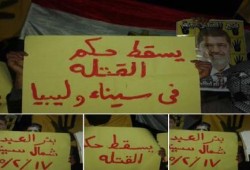 يسقط حكم
القتله
فى سيناء وليبيا
بئر العبد
شمال سي
٩/٢/١٧
يسقط حك
القتله
بئر العبد
شمال سي
٩/٢/١٧